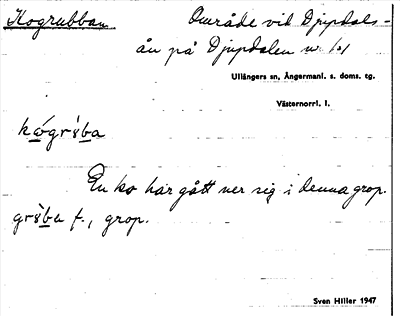 Kogrubban Område vid Djupdals-
ån på Djupdalen nr 1:1
Ullångers sn, Ångermanl. s. doms. tg.
Västernorrl. l.
En ko har gått ner sig i denna grop.
f., grop.
Sven Hiller 1947